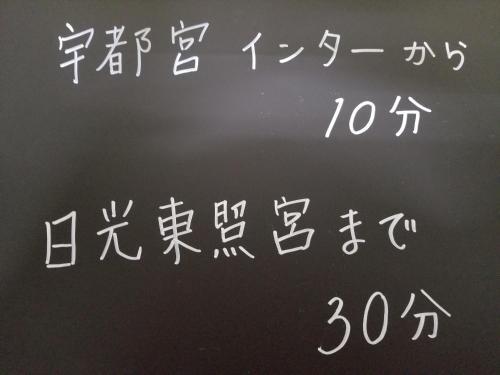 宇都宮インターから
10分
日光東照宮まで
30分